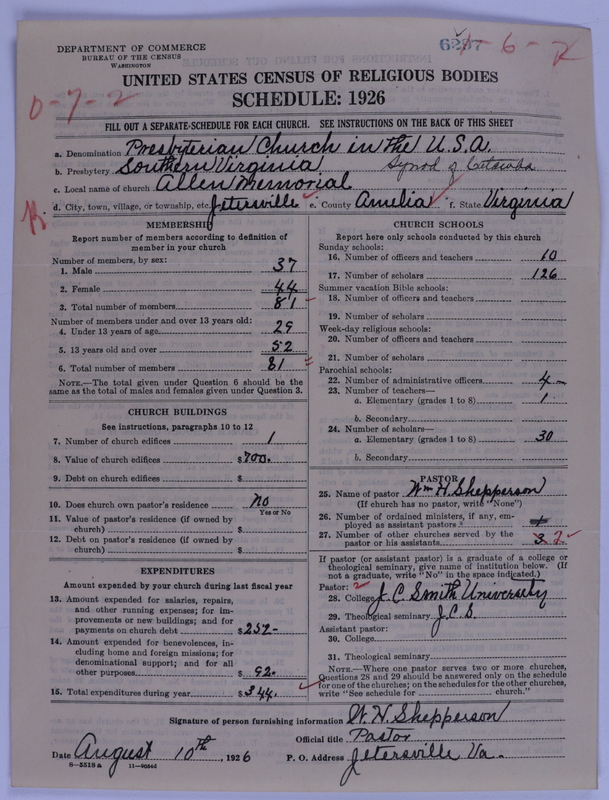 DEPARTMENT OF COMMERCE
BUREAU OF THE CENSUS
WASHINGTON
1-6-2
0-7-2
UNITED STATES CENSUS OF RELIGIOUS BODIES
SCHEDULE: 1926
FILL OUT A SEPARATE SCHEDULE FOR EACH CHURCH. SEE INSTRUCTIONS ON THE BACK OF THIS SHEET
a. Denomination Presbyterian Church in the U.S.A.
b. Presbytery Southern Virginia Synod of Catawba
c. Local name of church Allen Memorial
d. City, town, village, or township, etc. Jetersville e. County Amelia f. State Virginia
MEMBERSHIP
Report number of members according to definition of
member in your church
Number of members, by sex:
1. Male 37
2. Female 44
3. Total number of members 81
Number of members under and over 13 years old:
4. Under 13 years of age 29
5. 13 years old and over 52
6. Total number of members 81
NOTE.—The total given under Question 6 should be
same as the total of males and females given under Question 3.
CHURCH BUILDINGS
See instructions, paragraphs 10 to 12
7. Number of church edifices 1
8. Value of church edifices $700.
9. Debt on church edifices $
10. Does church own pastor's residence No
Yes or No
11. Value of pastor's residence (if owned by
church) $
12. Debt on pastor's residence (if owned by
church) $
EXPENDITURES
Amount expended by your church during last fiscal year
13. Amount expended for salaries, repairs,
and other running expenses; for im-
provements or new buildings; and for
payments on church debt $252-
14. Amount expended for benevolences, in-
cluding home and foreign missions; for
denominational support; and for all
other purposes $92.
15. Total expenditures during year $344.
CHURCH SCHOOLS
Report here only schools conducted by this church
Sunday schools:
16. Number of officers and teachers 10
17. Number of scholars 126
Summer vacation Bible schools:
18. Number of officers and teachers
19. Number of scholars
Week-day religious schools:
20. Number of officers and teachers
21. Number of scholars
Parochial schools:
22. Number of administrative officers 4-
23. Number of teachers—
a. Elementary (grades 1 to 8) 1
b. Secondary
24. Number of scholars—
a. Elementary (grades 1 to 8) 30
b. Secondary
PASTOR
25. Name of pastor Wm H. Shepperson
(If church has no pastor, write "None")
26. Number of ordained ministers, if any, em-
ployed as assistant pastors
27. Number of other churches served by the
pastor or his assistants
If pastor (or assistant pastor) is a graduate of a college or
theological seminary, give name of institution below. (If
not a graduate, write "No" in the space indicated.)
Pastor:
28. College J. C. Smith University
29. Theological seminary J.C.S.
Assistant pastor:
30. College
31. Theological seminary
NOTE.—Where one pastor serves two or more churches,
Questions 28 and 29 should be answered only on the schedule
for one of the churches; on the schedules for the other churches,
write "See schedule for church."
Signature of person furnishing information W. H. Shepperson
Official title Pastor
Date August 10th, 1926 P. O. Address Jetersville Va.
8-5518a 11-9054d